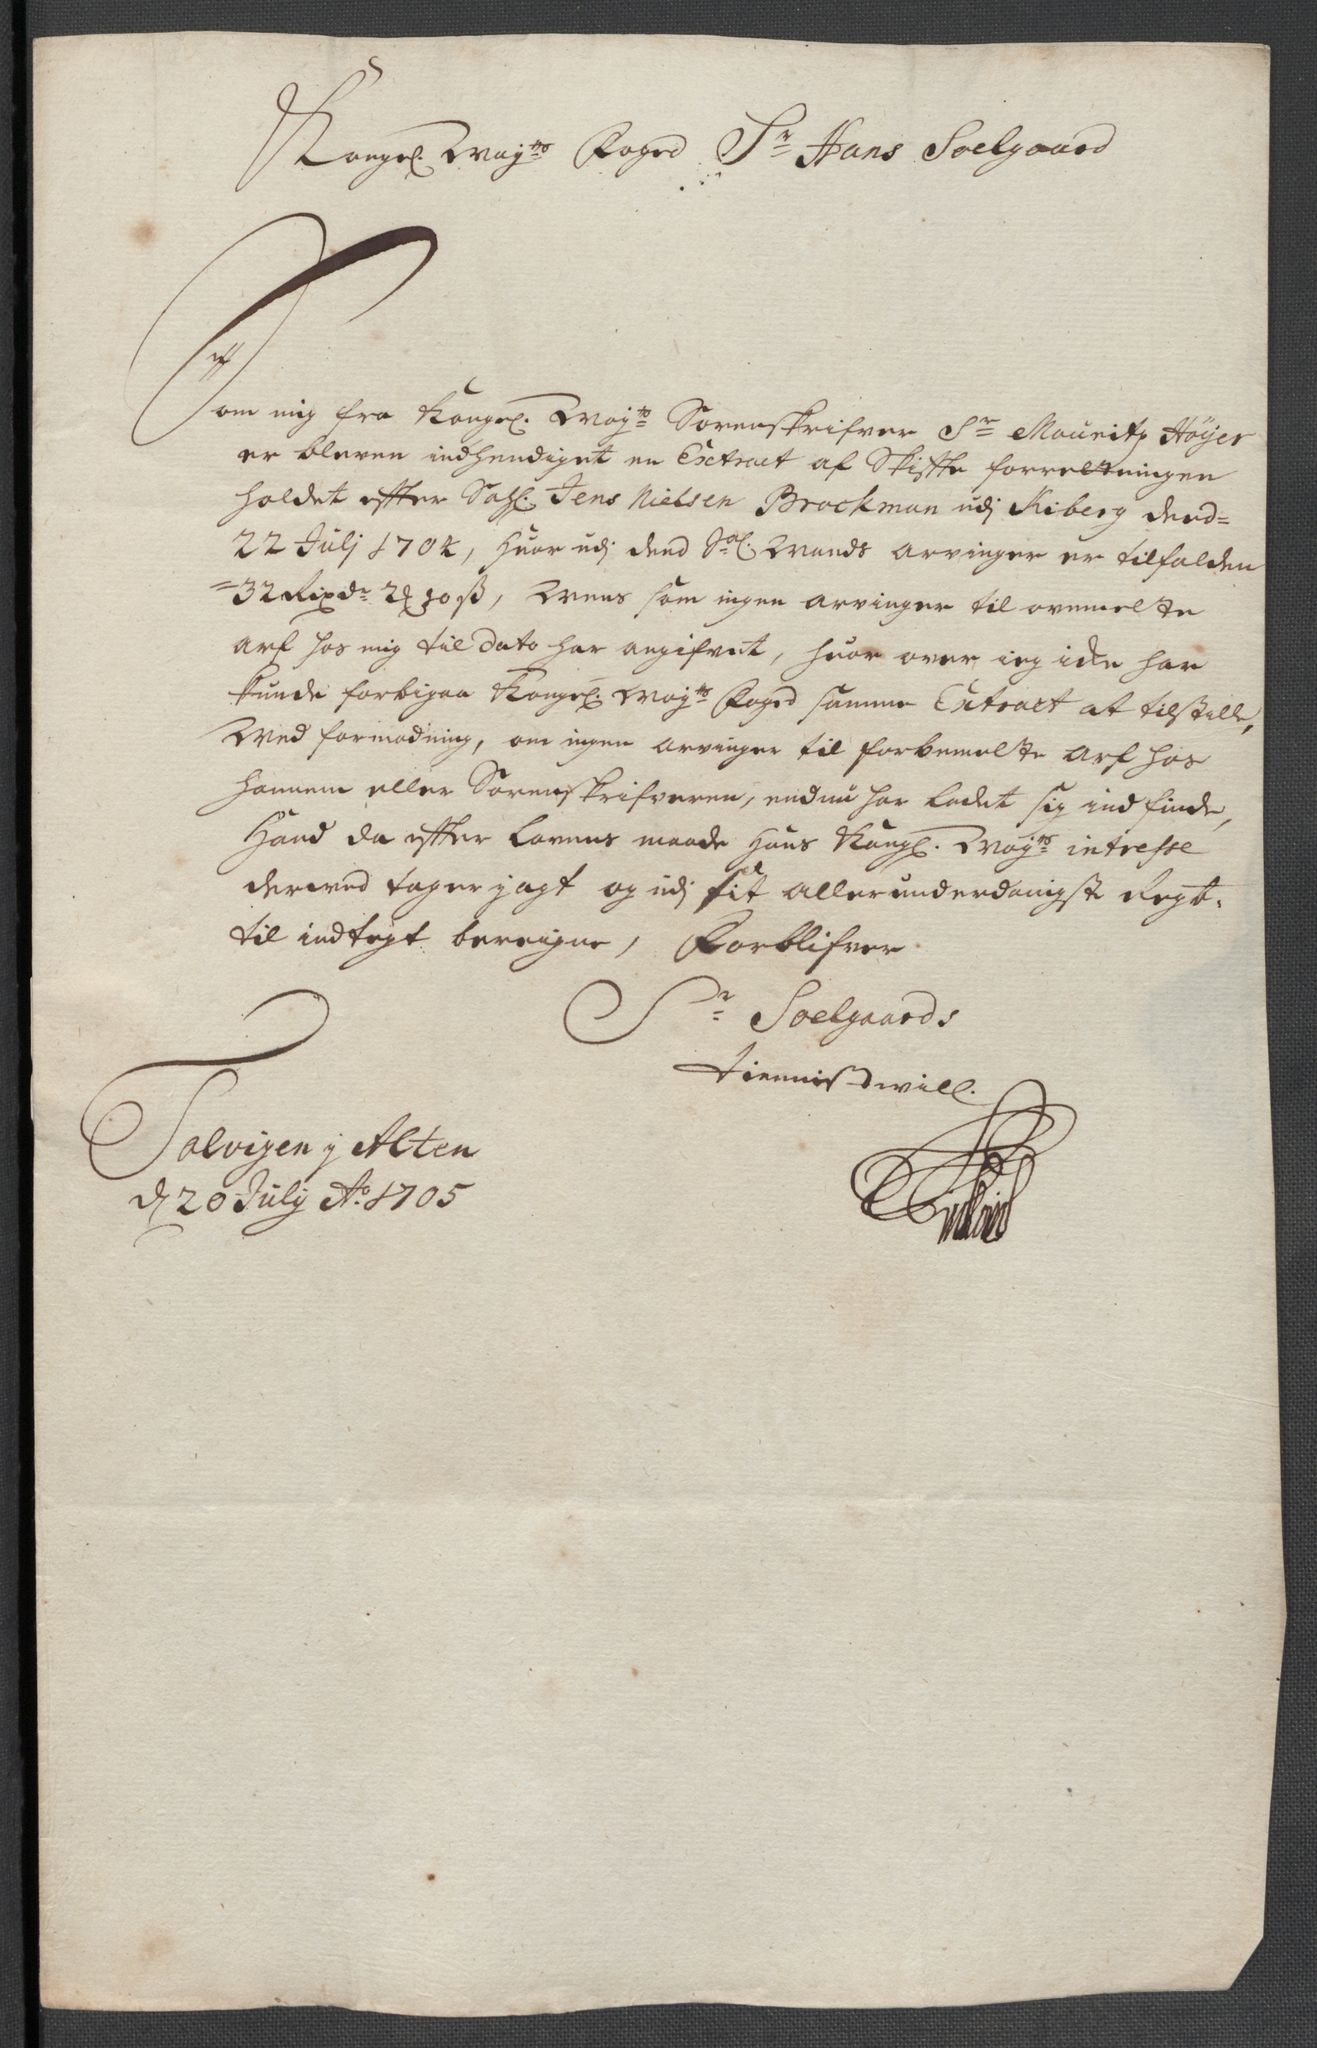 Kongel. May:ts Foged Sr Hans Soelgaard
Som mig fra Kongel. May:ts Sorenskrifver Sr Mouritz Höyer
er bleven indhendiget en Extract af Skiftte forretningen
holdet efter Sahl. Jens Nielsen Brockman udj Kiberg dend=
22 Julj 1704, Huor udj dend Sal. Mands arvinger er tilfalden
=32 Rixdr 2 10 ß, Mens som ingen arvinger til ovenmelte
arf hos mig til dato har angifvet, huor over ieg icke har
kunde forbigaa Kongel. May:ts Foged samme Extract at tilstille,
Med formodning, om ingen arvinger til forbemelte arf hos
hannem eller Sorenskrifveren, endnu har ladet sig indfinde,
Hand da efter lovens maade Hans Kongl. May:ts intresse
derved tager j agt og udj sit allerunderdanigste Regt.
til indtegt bereigne, Forblifver
Sr Soelgaards
tiennistvill.
Talvigen j Alten
d 20 Julij Ao 1705